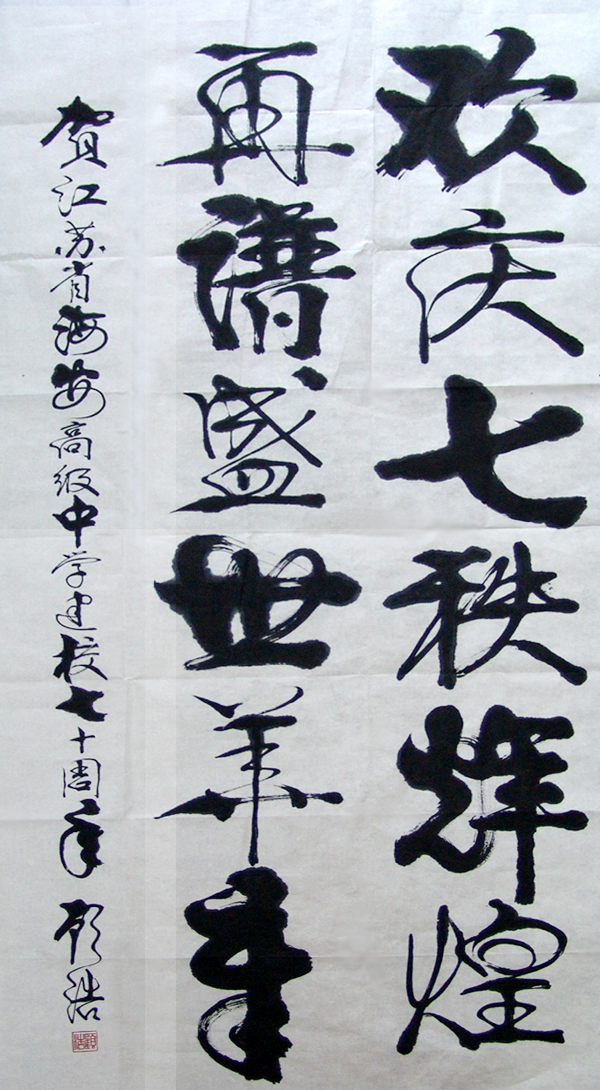 欢庆七秩辉煌
再谱盛世华年
贺江苏省海安高级中学建校七十周年 顾浩
顾浩